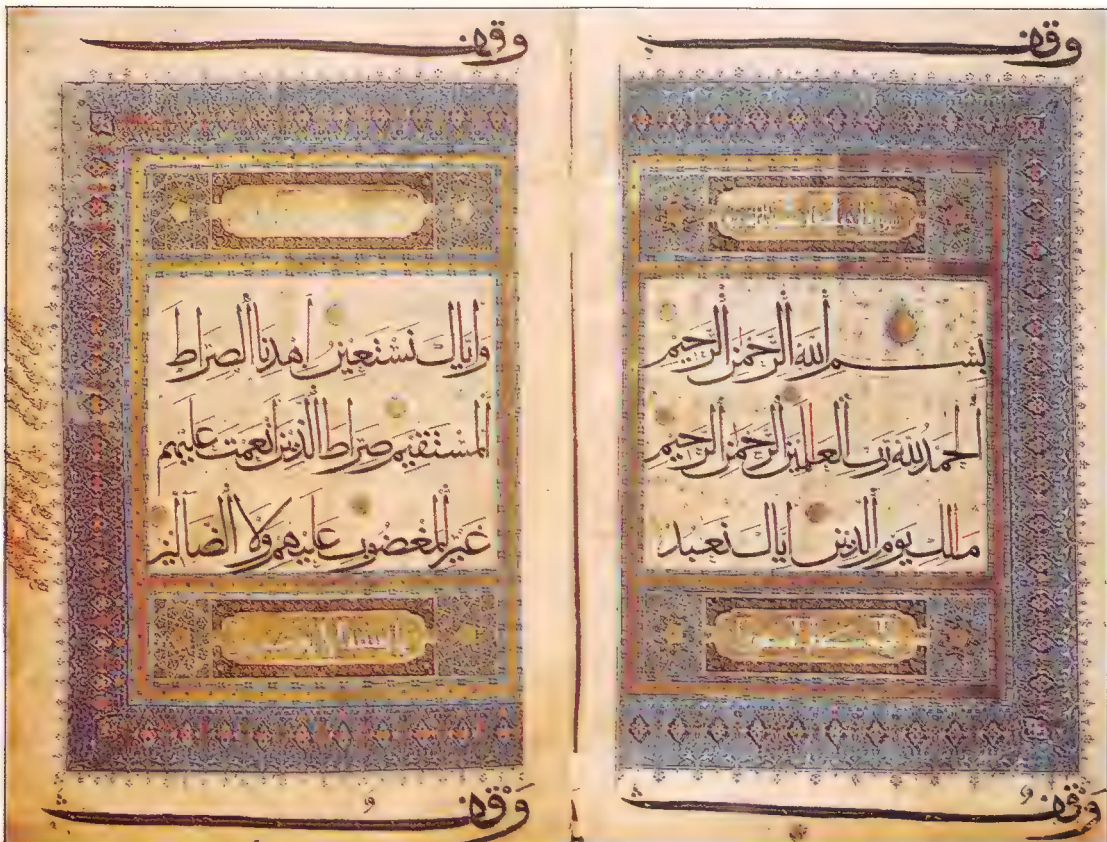 وقف
بِسْمِ اللهِ الرَّحْمٰنِ الرَّحِيمِ
الْحَمْدُ لِلّٰهِ رَبِّ الْعٰلَمِينَ الرَّحْمٰنِ الرَّحِيمِ
مٰلِكِ يَوْمِ الدِّينِ اِيَّاكَ نَعْبُدُ
وقف
وقف
وَاِيَّاكَ نَسْتَعِينُ اِهْدِنَا الصِّرَاطَ
الْمُسْتَقِيمَ صِرَاطَ الَّذِينَ اَنْعَمْتَ عَلَيْهِمْ
غَيْرِ الْمَغْضُوبِ عَلَيْهِمْ وَلَا الضَّالِّينَ
وقف